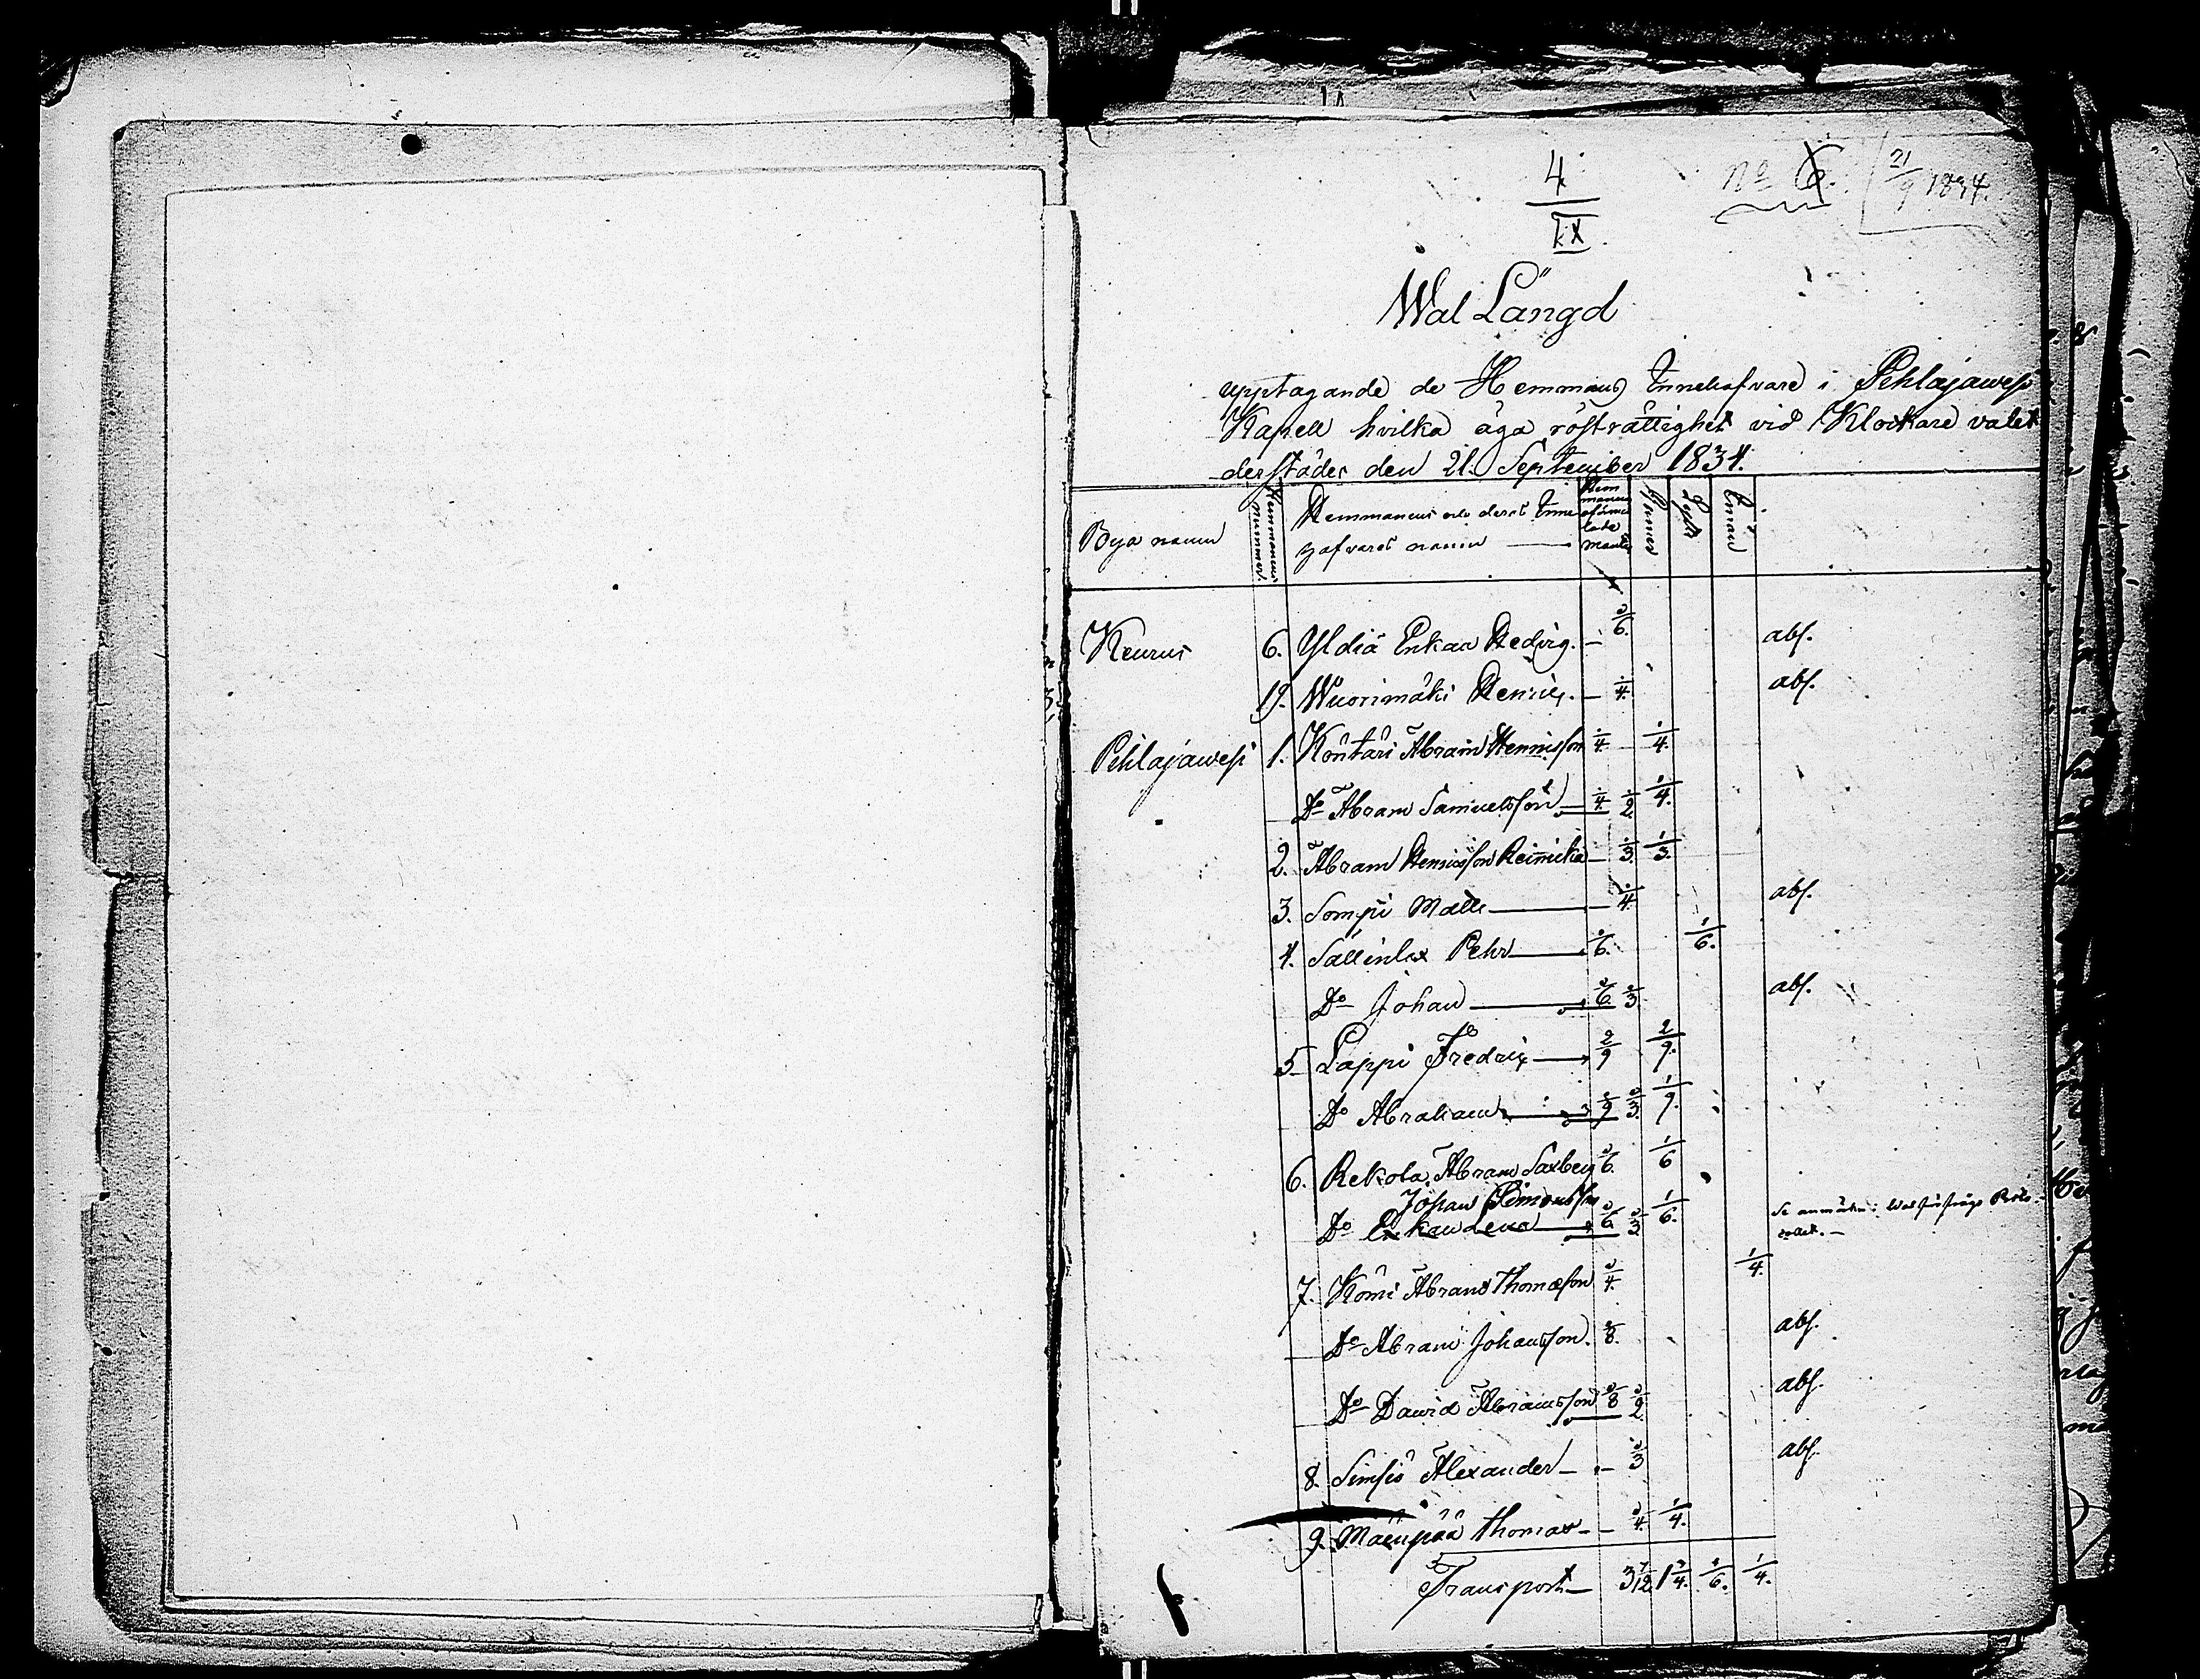 4
IX
No 6.
21/9 1834.
Wal Längd
upptagande de Hemmans Innehafvare i Pihlajawesi
Kapell hvilka äga rösträttighet vid Klockare valet
derstädes den 21. September 1834.
Bya namn
Hemmanens nummer
Hemmanens och deras Innehafvares namn
Hemmanens oförmedlade mantal
Enär
Keurus 6. Yldiä Enkan Hedvig. — 1/6. abs.
19. Wuorimäki Henric. — 1/4. abs.
Pihlajawesi 1. Kontäri Abram Henricsson 1/4. 1/4.
Do Abram Samuelsson — 1/4. 1/2 1/4.
2. Abram Henricsson — 1/3. 1/3.
3. Sompi Matts — 1/4. abs.
4. Sällinlax Pehr — 1/6. 1/6.
Do Johan — 1/6 1/3. abs.
5 Lappi Fredric — 2/9 2/9.
Do Abraham — 1/9 1/3. 1/9.
6. Rekola, Abram Saxberg 1/6. 1/6
Johan Simonsson
Do Enkan Lena — 1/6 1/3. 1/6.
7. Kömi Abram Thomasson 1/4. 1/4.
Do Abram Johansson. 1/8. abs.
Do David Abramsson 1/8 1/2. abs.
8. Simsiö Alexander — 1/3 abs.
9. Mäenpää Thomas — 1/4. 1/4.
Transport — 3 7/12 1 3/4. 1/6. 1/4.